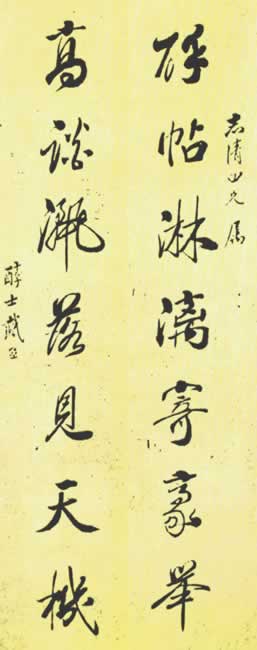 志清兄屬
醉帖淋漓寄豪舉
高談灑落見天機
醇士戴熙